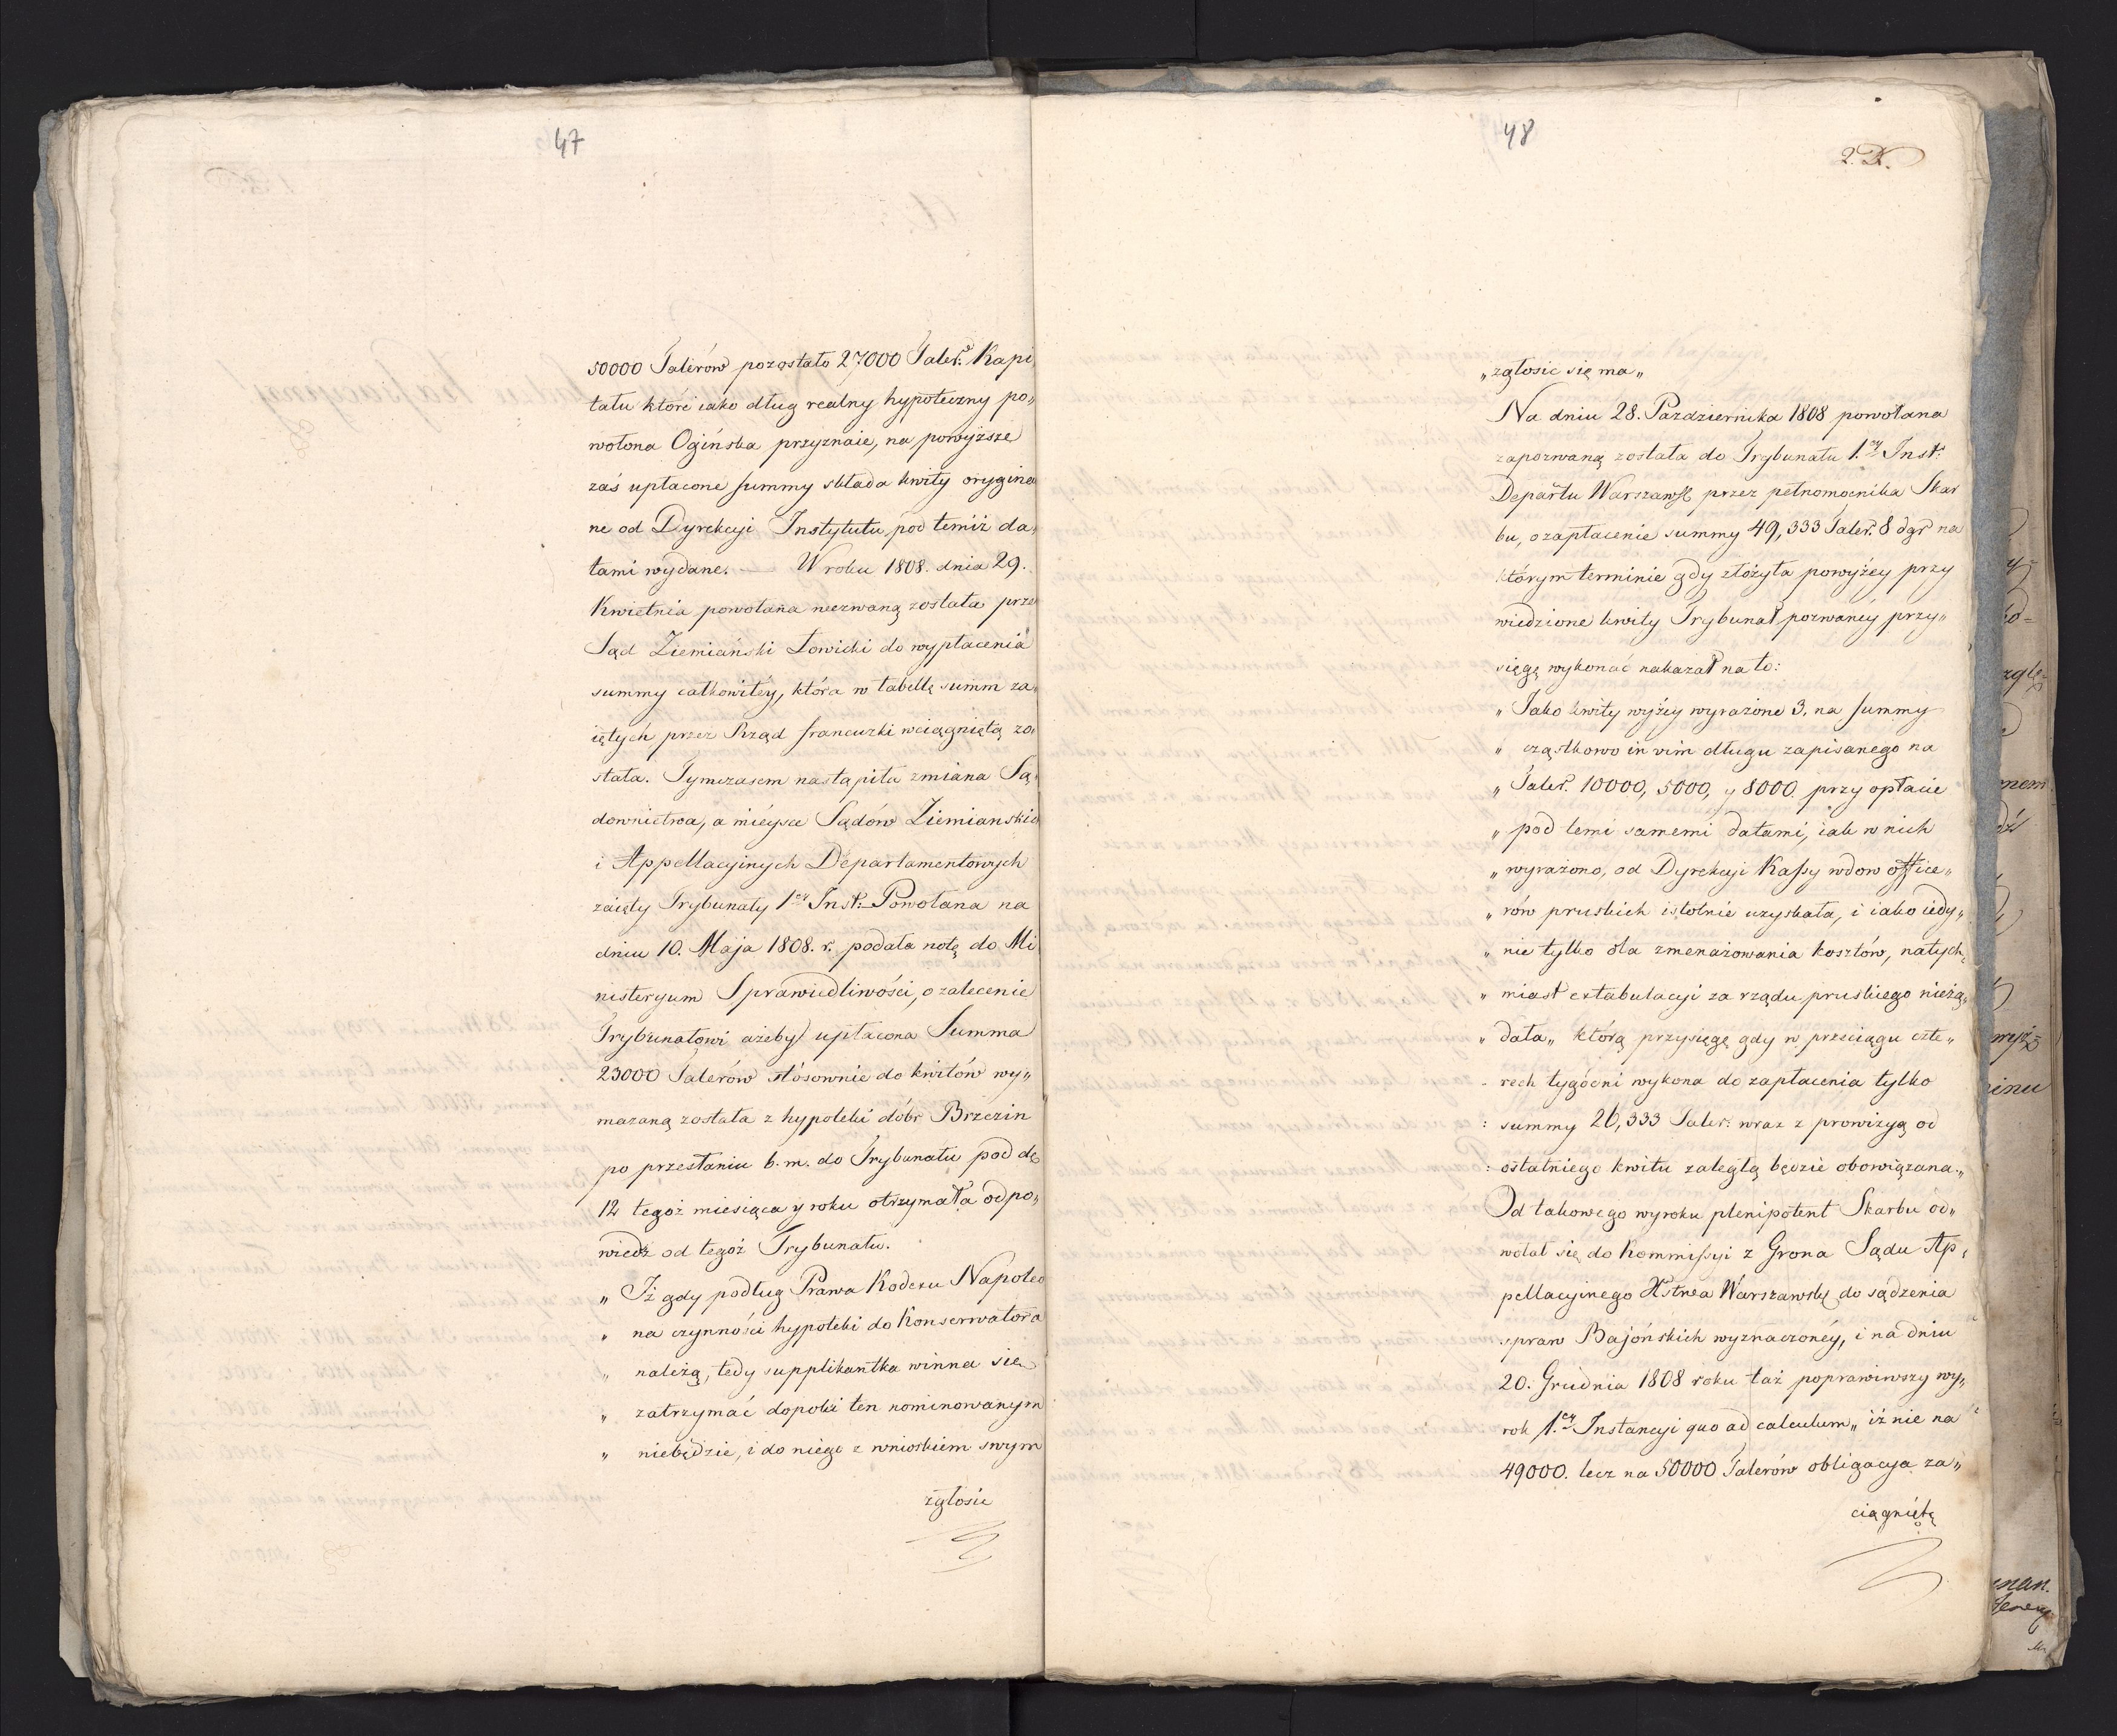 47
50000 Talérów pozostało 27000 Taler: Kapi
tału które iako dług realny hypoteczny po„
wołona Ogińska przyznaie, na powyższe
zaś upłacone summy składa kwity orygina
ne od Dyrekcyi Instytutu pod temiż da„
tami wydane. — W roku 1808. dnia 29.
Kwietnia powołana wezwaną została prze
Sąd Ziemiański Łowicki do wypłacenia
summy całkowitéy, która w tabellę summ za„
iętych przez Rząd francuzki wciągniętą zo„
stała. Tymczasem nastąpiła zmiana Są„
downictwa, a miéysce Sądów Ziemianskich
i Appellacyinych Departamentowych
zaięły Trybunały 1ey Inst: Powołana na
dniu 10. Maja 1808. r. podała notę do Mi
nisteryum Sprawiedliwości, o zalecenie
Trybunałowi ażeby upłacona Summa
23000 Talerów stósownie do kwitów wy„
mazaną została z hypoteki dóbr Brzezin
po przesłaniu b. m. do Trybunału pod d.
12 tegoż miesiąca y roku otrzymała odpo„
wiedź od tegoż Trybunału.
„ Iż gdy podług Prawa Kodexu Napoleo
„ na czynności hypoteki do Konserwatora
„ należą, tedy supplikantka winna się
„ zatrzymać dopoki ten nominowanym
„ niebędzie, i do niego z wnioskiem swym
zgłosić
48
2. K.
„zgłosic się ma„
Na dniu 28. Pazdziernika 1808 powołana
zapozwaną została do Trybunału 1.ey Inst:
Departu Warszawsk. przez pełnomocnika Skar
bu, o zapłacenie summy 49,333 Taler. 8 dgr na
którym terminie gdy złożyła powyżey przy
wiedzione kwity Trybunał pozwanéy przy„
sięgę wykonać nakazał na to:
„ Jako kwity wyżey wyrażone 3. na summy
„ cząstkowo in vim długu zapisanego na
„ Taler. 10000, 5000, y 8000. przy opłacie
„ pod temi samemi datami, iak w nich
„ wyrażono, od Dyrekcyi Kassy wdow office„
„ rów pruskich istotnie uzyskała, i iako iedy„
„ nie tylko dla zmenażowania kosztów, natych„
„ miast extabulacyi za rządu pruskiego nieżą„
„ dała„ którą przysięgę gdy w przeciągu czte„
„ rech tygodni wykona do zapłacenia tylko
: summy 26,333 Taler: wraz z prowizyą od
: ostatniego kwitu zaległą będzie obowiązana.„
Od takowego wyroku plenipotent Skarbu od„
wołał się do Kommissyi z Grona Sądu Ap„
pellacyinego Xstwa Warszawsk. do sądzenia
spraw Bajońskich wyznaczonéy, i na dniu
20. Grudnia 1808 roku taż poprawiwszy wy„
rok 1.ey Instancyi quo ad calculum„ iż nie na
49000. lecz na 50000 Talerów obligacya za„
ciągniętą